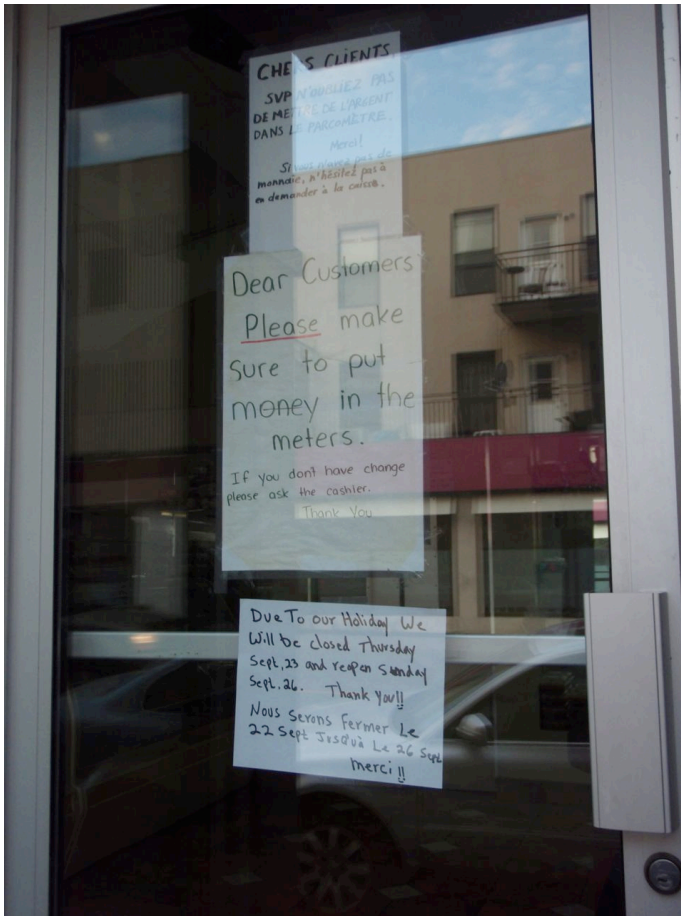 CHERS CLIENTS
SVP N'OUBLIEZ PAS
DE METTRE DE L'ARGENT
DANS LE PARCOMÈTRE.
Merci!
Si vous n'avez pas de
monnaie, n'hésitez pas à
en demander à la caisse.
Dear Customers
Please make
sure to put
money in the
meters.
If you don't have change
please ask the cashier.
Thank You
Due To our Holiday We
Will be closed Thursday
Sept, 23 and reopen Sunday
Sept. 26. Thank You!!
Nous Serons Fermer Le
22 Sept Jusqu'à Le 26 Sept
merci!!